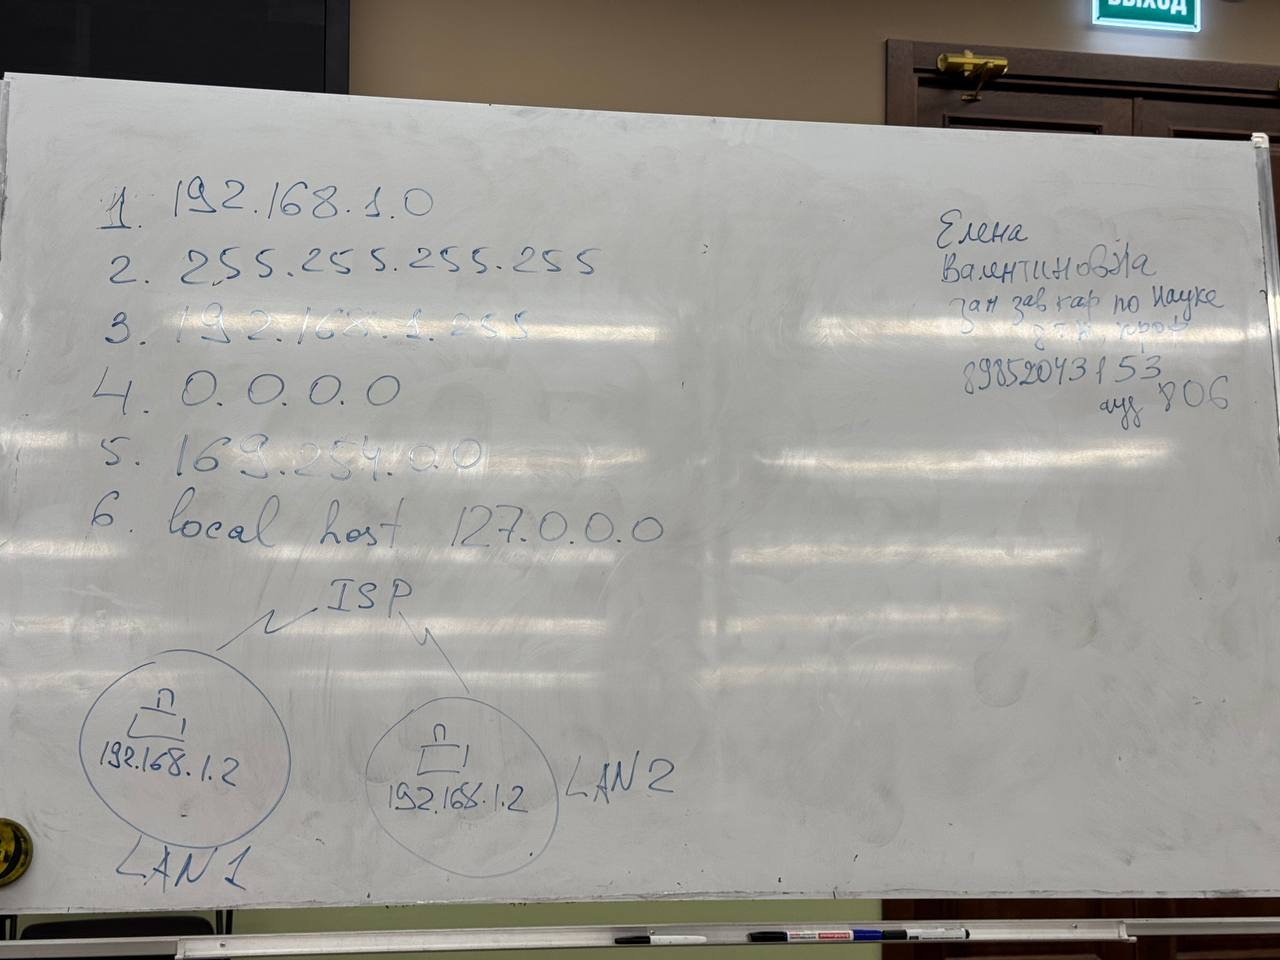 ВЫХОД
1. 192.168.1.0
2. 255.255.255.255
3. 192.168.1.255
4. 0.0.0.0
5. 169.254.0.0
6. local host 127.0.0.0
ISP
192.168.1.2
LAN 1
192.168.1.2
LAN 2
Елена
Валентиновна
зам зав кар по науке
проф
89852043153
ауд 806